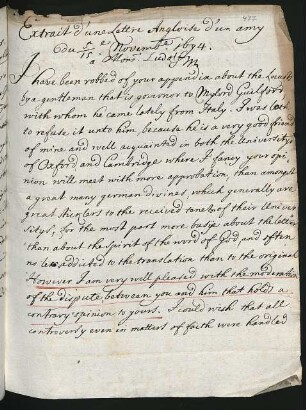 422
Extrait d'une Lettre Angloise d'un amy
du 5/15 e Novemb.e 1694.
a Mons.r Ludolf
I have been robbed of your appendix about the
by a gentleman that is governor to Mylord Guilford
with whom he came lately from Italy. I was loth
to refuse it unto him, because he is a very good friend
of mine and well acquainted in both the Universitys
of Oxford and Cambridge where I fancy your opi-
nion will meet with more approbation, than amongst
a great many german divines, which generally are
great stickers to the received tenets of their Univer
sitys, for the most part more busie about the letter
than about the spirit of the word of God and often
no less addicted to the translation than to the original
However I am very well pleased with the moderation
of the dispute between you and him that hold a
contrary opinion to yours. I could wish that all
controversy even in matters of faith were handled